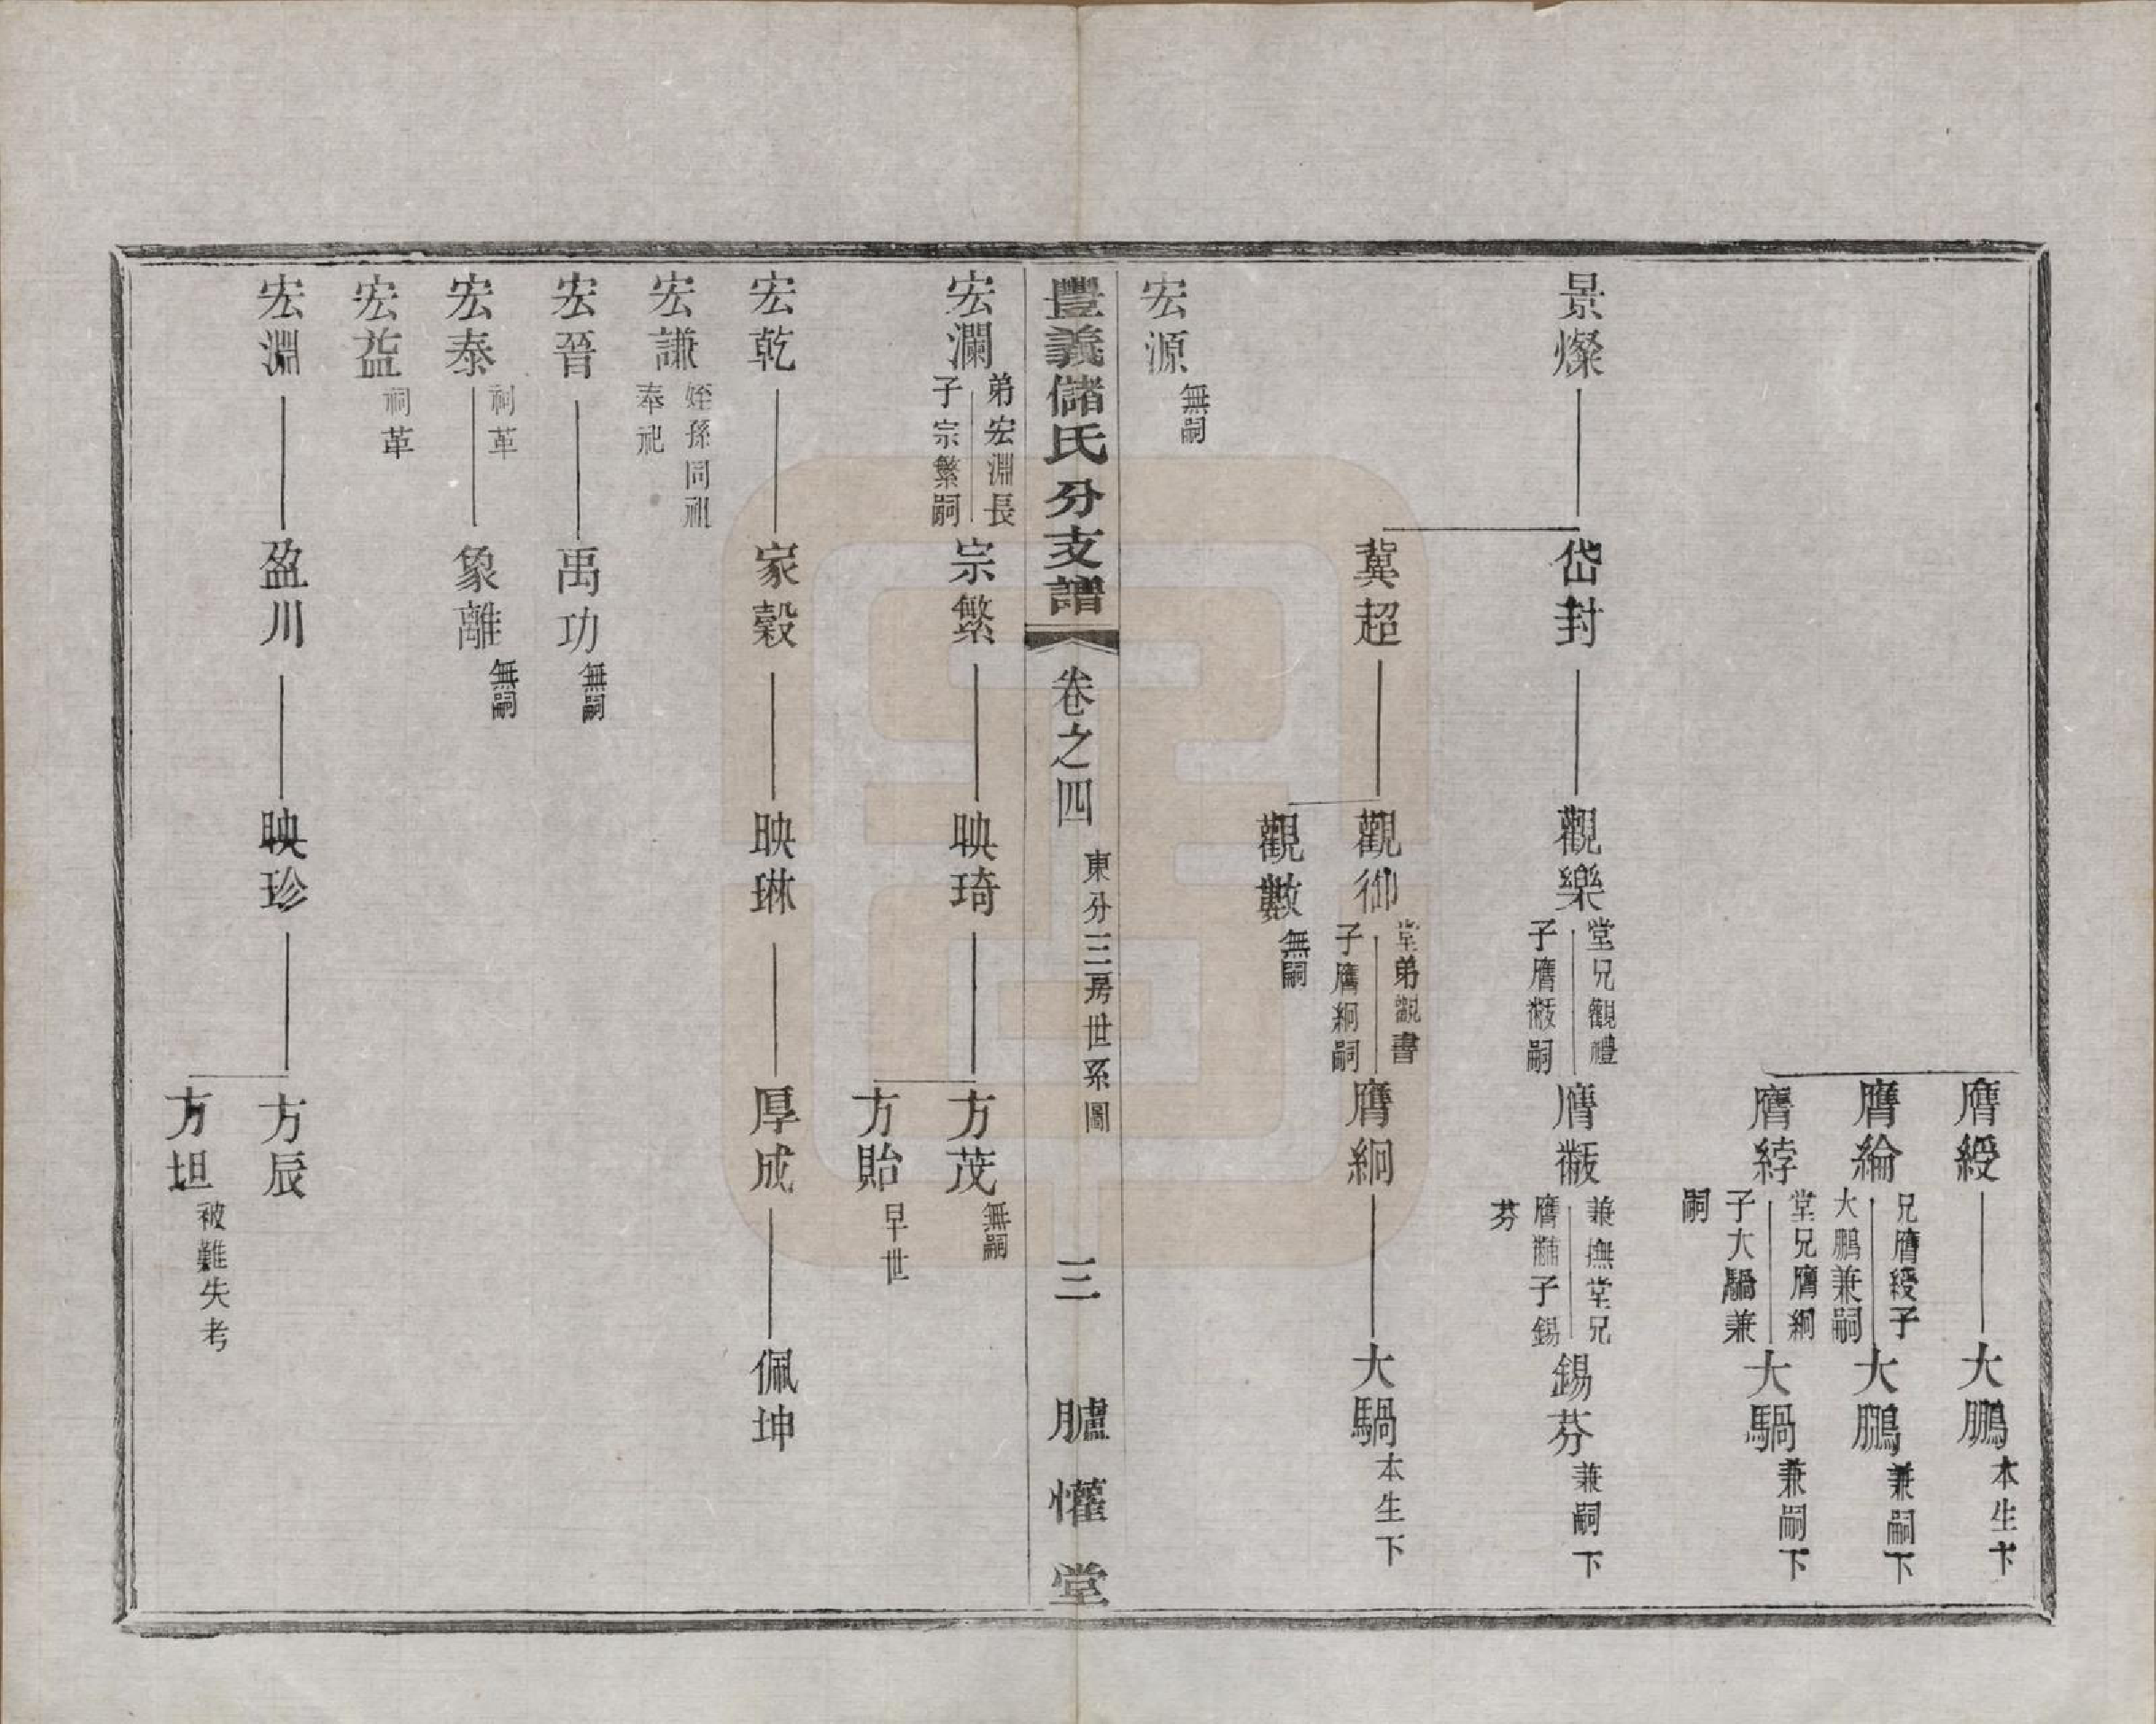 膺綬
大鵬 本生下
膺綸 兄膺綬子
大鵬兼嗣
大鵬 兼嗣下
膺綍 堂兄膺絅
子大騧兼
嗣
大騧 兼嗣下
景燦
岱封
觀樂 堂兄觀禮
子膺黻嗣
膺黻 兼撫堂兄
膺黼子錫
芬
錫芬 兼嗣下
冀超
觀御 堂弟觀書
子膺絅嗣
膺絅
大騧 本生下
觀數 無嗣
宏源 無嗣
豐義儲氏分支譜 卷之四 東分三房世系圖 三 臚懽堂
宏瀾 弟宏淵長
子宗繁嗣
宗繁
映琦
方茂 無嗣
方貽 早世
宏乾
家穀
映琳
厚成
佩坤
宏謙 姪孫同祖
奉祀
宏晉
禹功 無嗣
宏泰 祠革
象離 無嗣
宏益 祠革
宏淵
盈川
映珍
方辰
方坦 被難失考